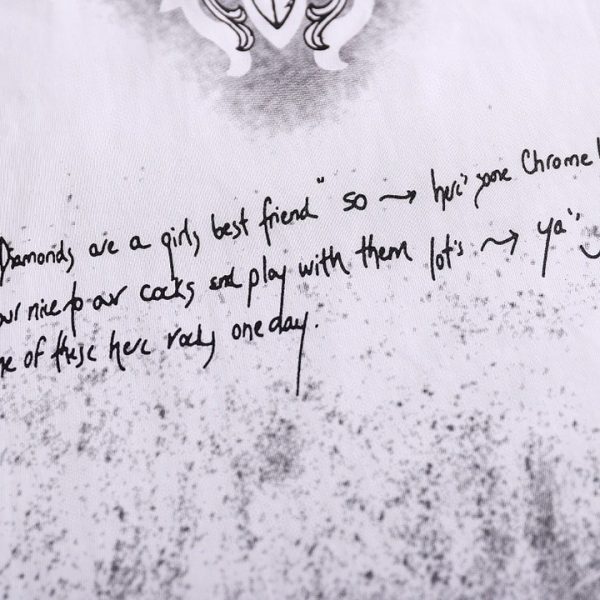 Diamonds are a girls best friend" so → here's some Chrome
our nice to our cocks and play with them lot's → ya"
of these here rocks one day.